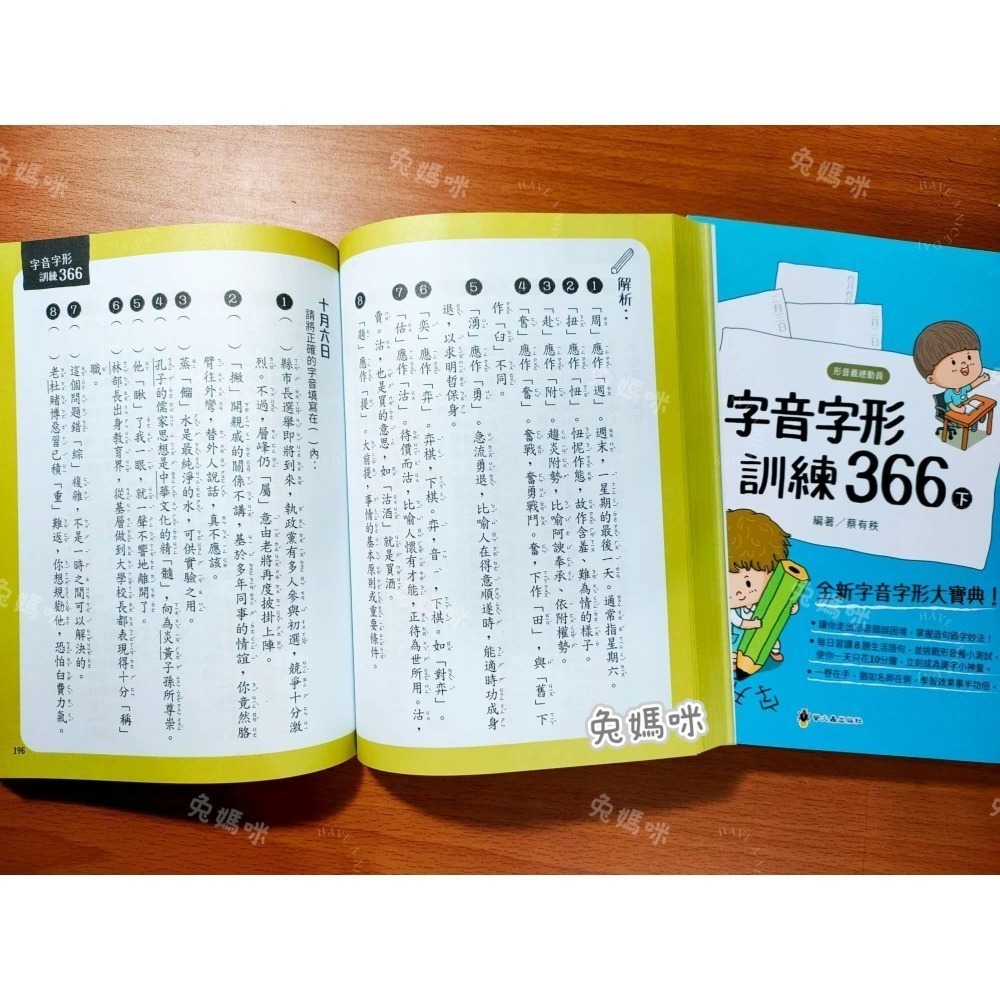 解析：
❶「周」應作「週」。週末，一星期的最後一天。通常指星期六。
❷「扭」應作「忸」。忸怩作態，故作含羞、難為情的樣子。
❸「赴」應作「附」。趨炎附勢，比喻阿諛奉承、依附權勢。
❹「奮」應作「奮」。奮戰，奮勇戰鬥。奮，下作「田」，與「舊」下
作「臼」不同。
❺「湧」應作「勇」。急流勇退，比喻人在得意順遂時，能適時功成身
退，以求明哲保身。
❻「奕」應作「弈」。弈棋，下棋。弈，音ㄧˋ，下棋。如「對弈」。
❼「估」應作「沽」。待價而沽，比喻人懷有才能，正待為世所用。沽，
賣。沽，也是買的意思，如「沽酒」就是買酒。
❽「題」應作「提」。大前提，事情的基本原則或重要條件。
字音字形
訓練366
十月六日
請將正確的字音填寫在（ ）內：
❶（ ）縣市長選舉即將到來，執政黨有多人參與初選，競爭十分激
烈。不過，層峰仍「屬」意由老將再度披掛上陣。
❷（ ）「撇」開親戚的關係不講，基於多年同事的情誼，你竟然胳
臂往外彎，替外人說話，真不應該。
❸（ ）蒸「餾」水是最純淨的水，可供實驗之用。
❹（ ）孔子的儒家思想是中華文化的精「髓」，向為炎黃子孫所尊崇。
❺（ ）他「瞅」了我一眼，就一聲不響地離開。
❻（ ）林部長出身教育界，從基層做到大學校長都表現得十分「稱」
職。
❼（ ）這個問題錯「綜」複雜，不是一時之間可以解決的。
❽（ ）老杜賭博惡習已積「重」難返，你想規勸他，恐怕白費力氣。
196
形音義總動員
字音字形
訓練366下
編著／蔡有秩
全新字音字形大寶典！
每日習讀8題生活語句，並挑戰形音義小測試，
使你一天只花10分鐘，立刻成為識字小神童。
一卷在手，猶如名師在側，學習效果事半功倍。
螢火蟲出版社
兔媽咪
兔媽咪
兔媽咪
兔媽咪
兔媽咪
兔媽咪
兔媽咪